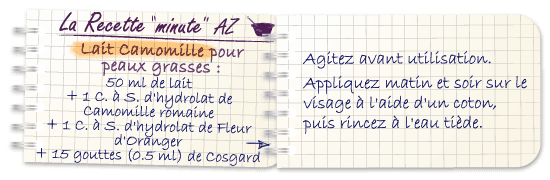 La Recette "minute" AZ
Lait Camomille pour
peaux grasses :
50 ml de lait
+ 1 C. à S. d'hydrolat de
Camomille romaine
+ 1 C. à S. d'hydrolat de Fleur
d'Oranger
+ 15 gouttes (0.5 ml) de Cosgard
Agitez avant utilisation.
Appliquez matin et soir sur le
visage à l'aide d'un coton,
puis rincez à l'eau tiède.